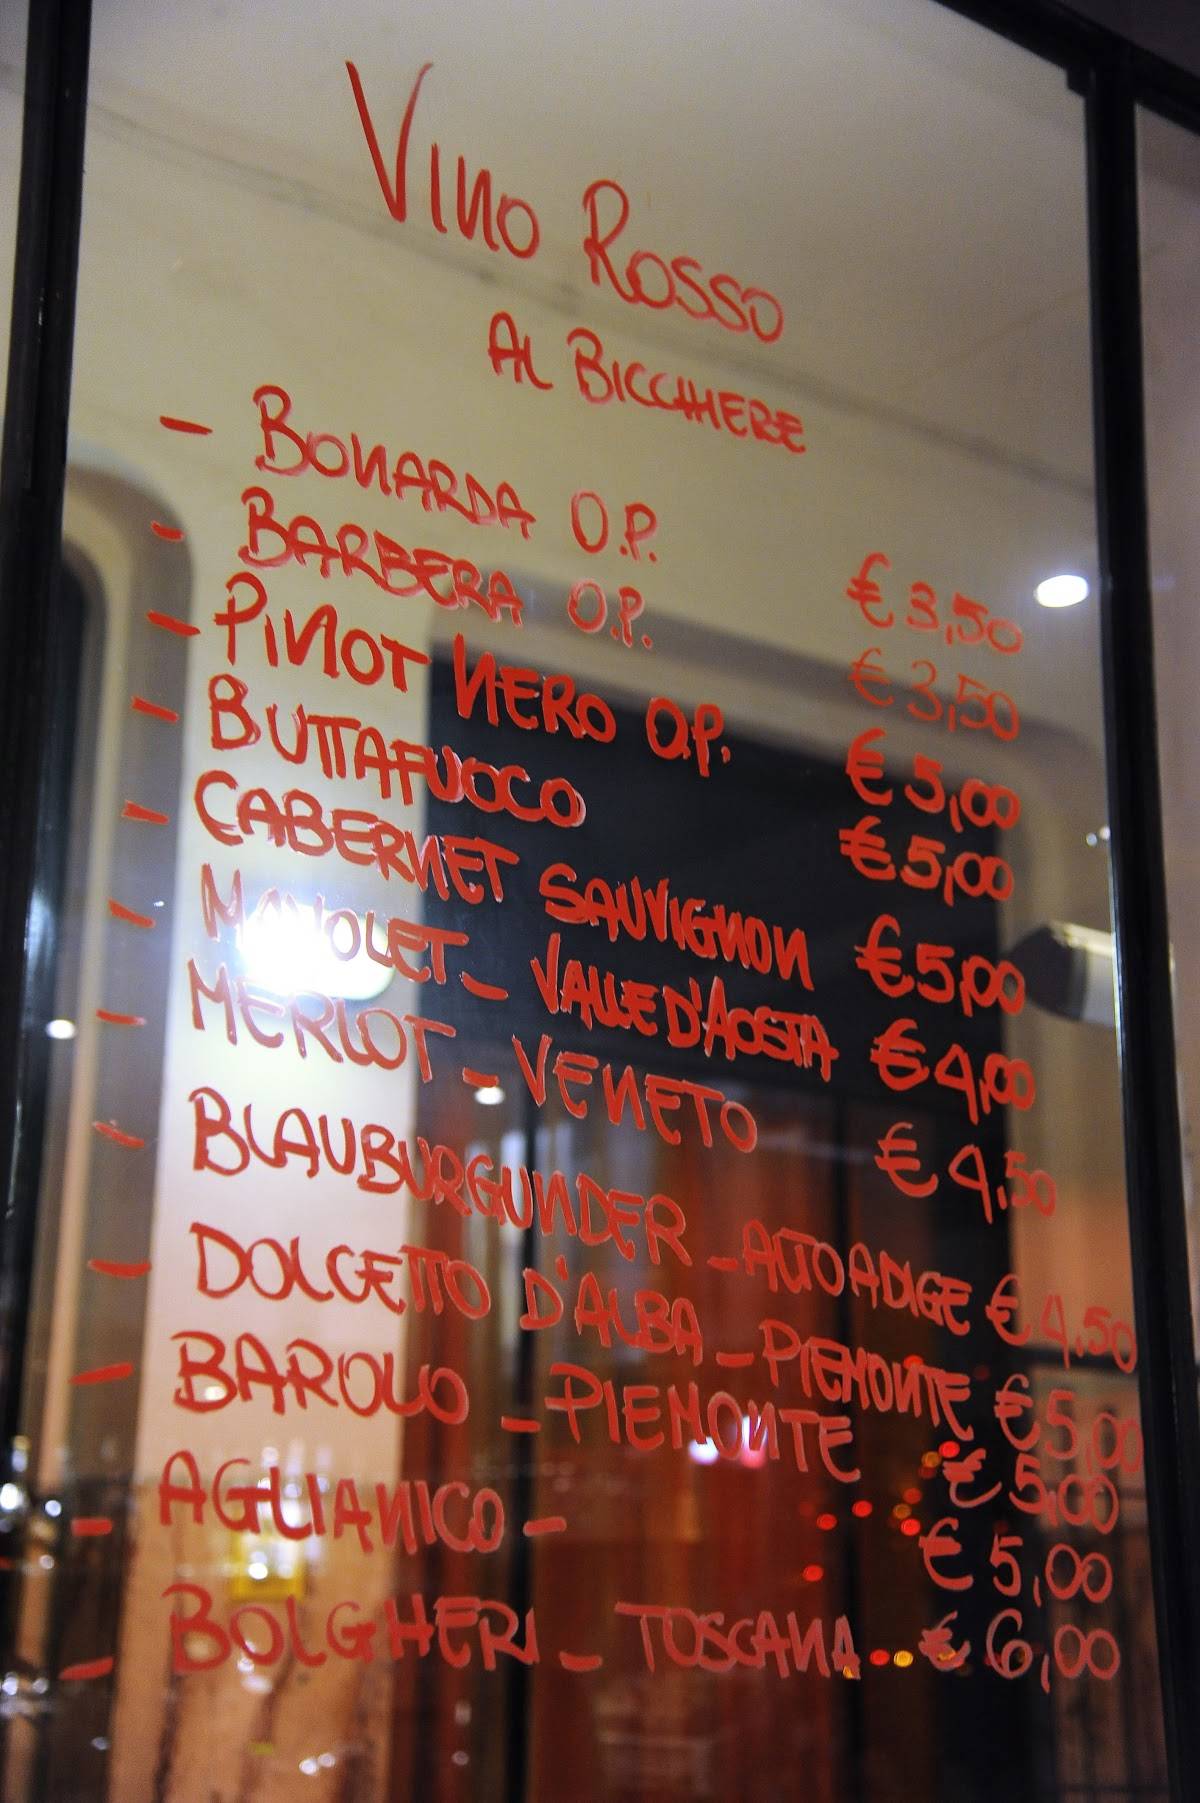 Vino Rosso
Al Bicchiere
- Bonarda O.P. € 3,50
- Barbera O.P. € 3,50
- Pinot Nero O.P. € 5,00
- Buttafuoco € 5,00
- Cabernet Sauvignon € 5,00
- Mayolet - Valle d'Aosta € 4,00
- Merlot - Veneto € 4,50
- Blauburgunder - Alto Adige € 4,50
- Dolcetto d'Alba - Piemonte € 5,00
- Barolo - Piemonte € 5,00
- Aglianico - € 5,00
- Bolgheri - Toscana € 6,00